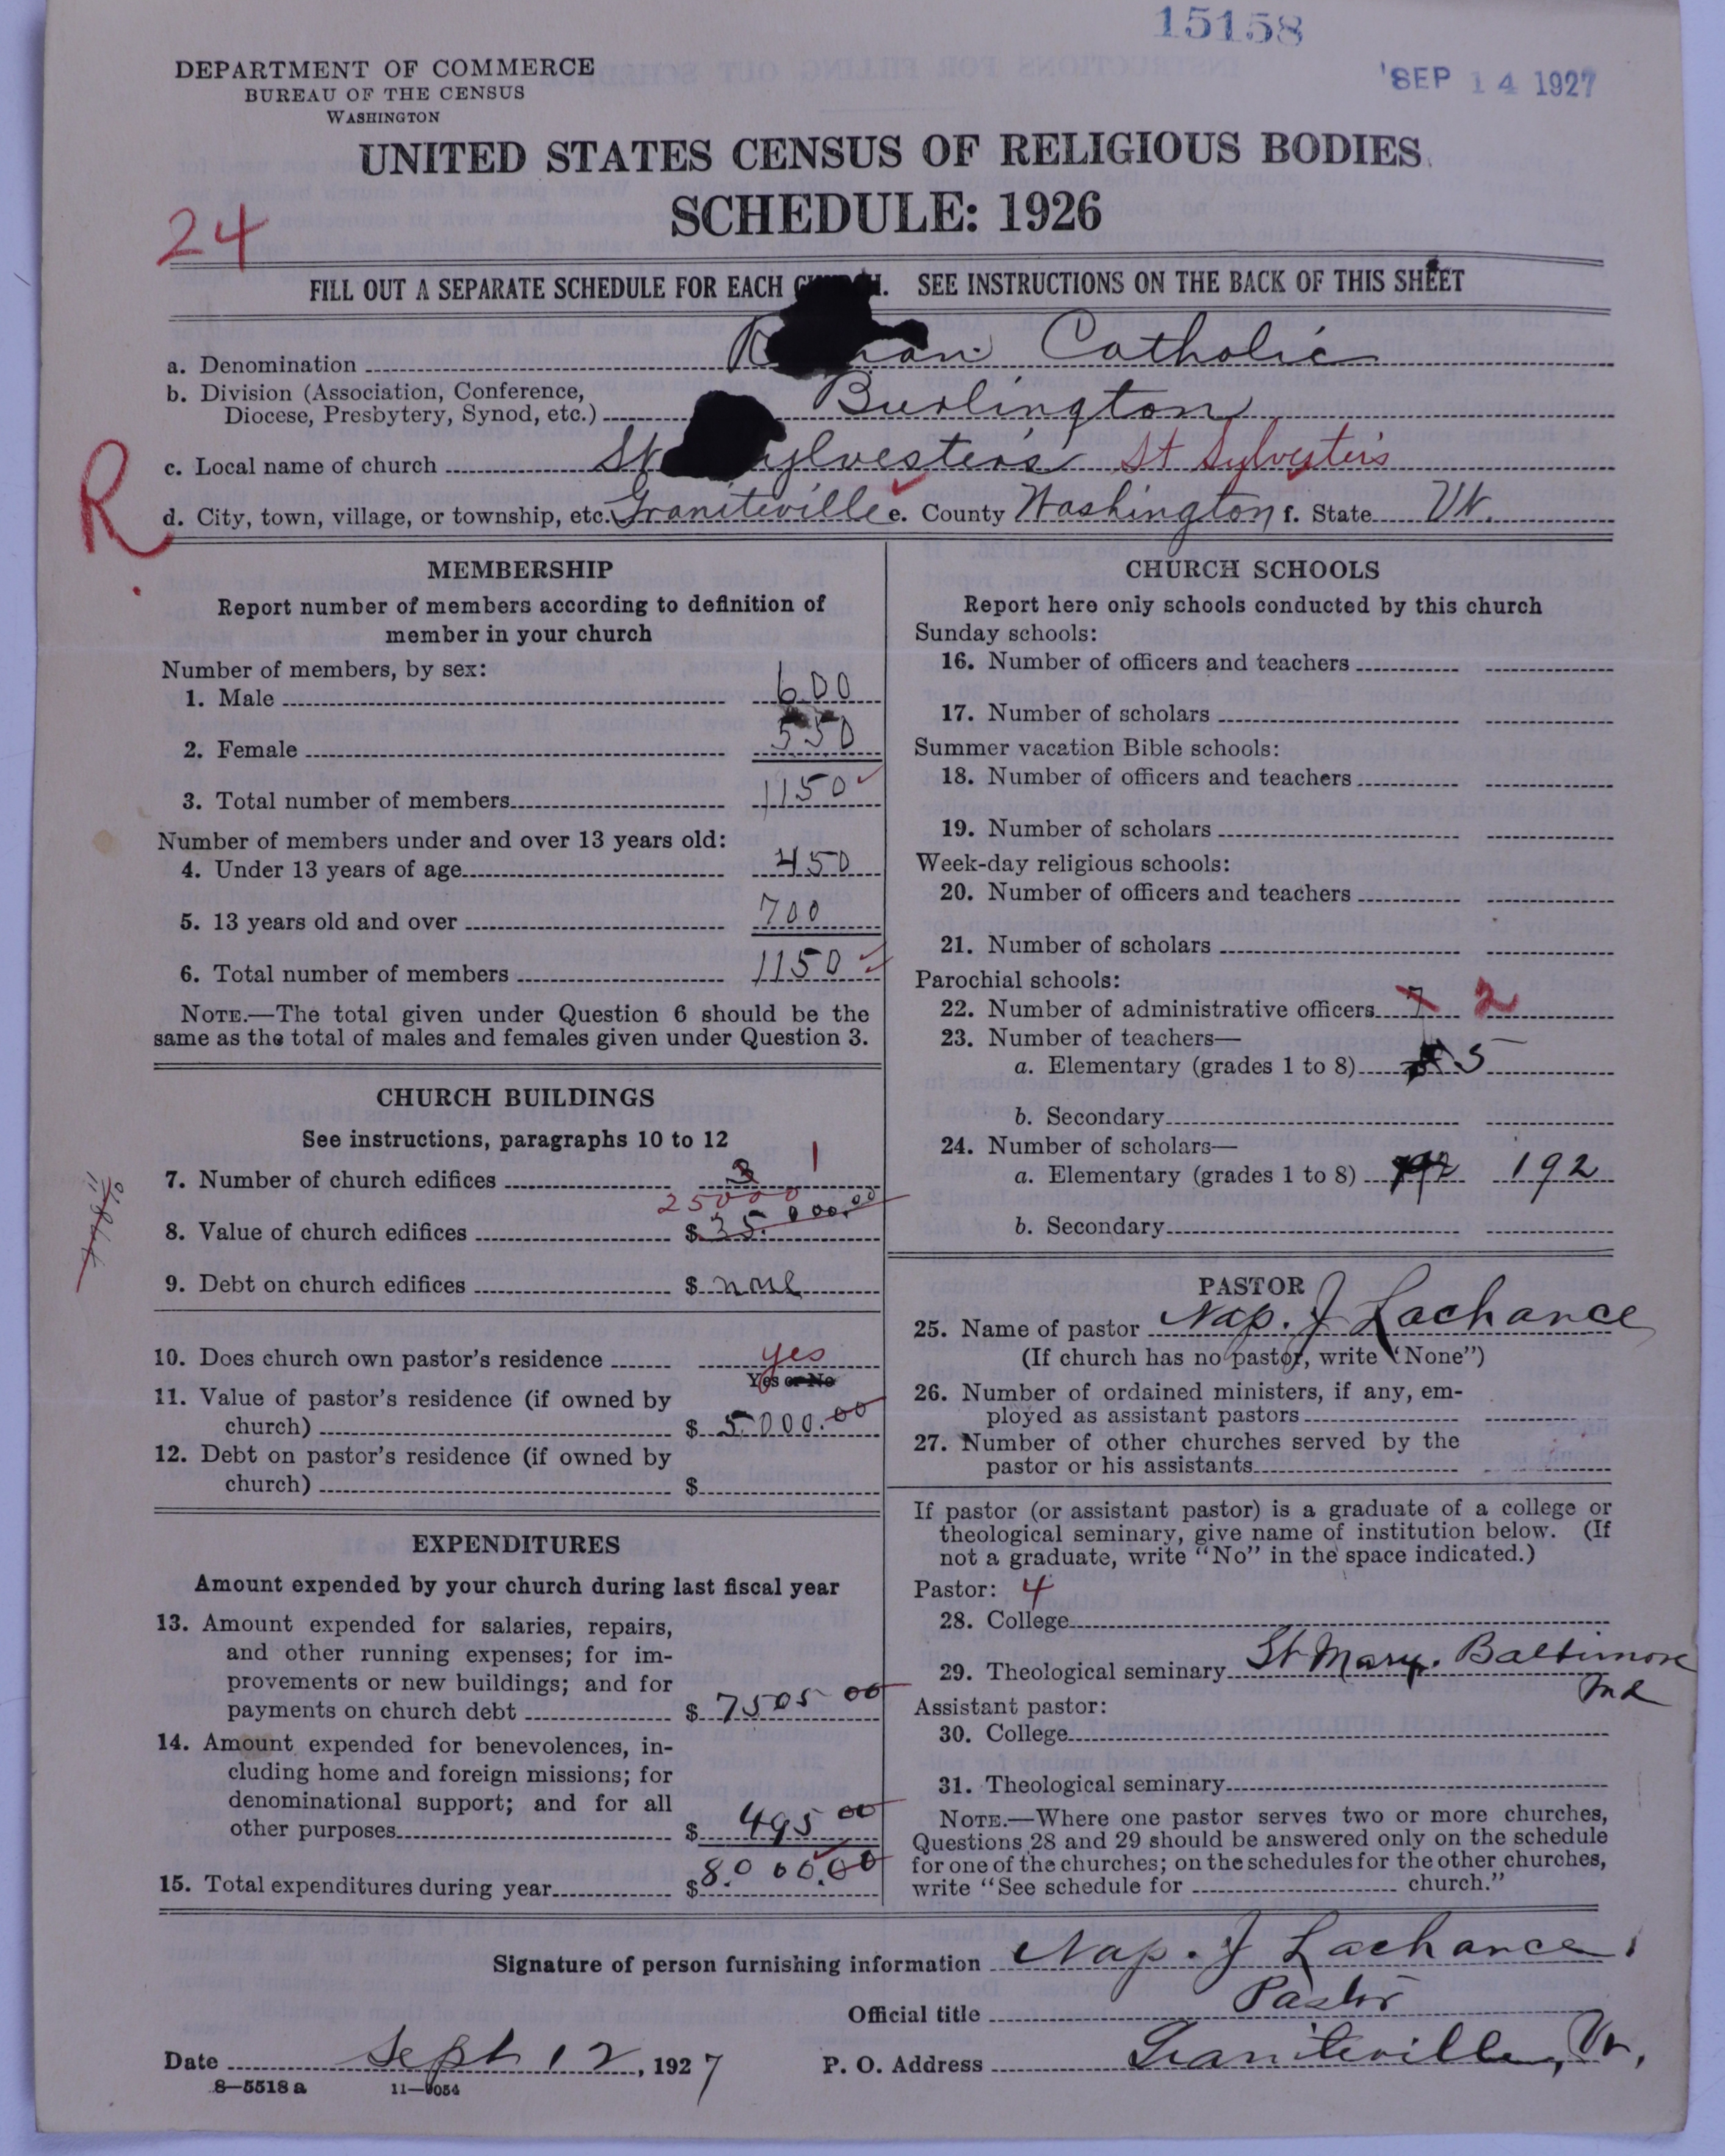 15158
SEP 14 1927
DEPARTMENT OF COMMERCE
BUREAU OF THE CENSUS
WASHINGTON
UNITED STATES CENSUS OF RELIGIOUS BODIES
SCHEDULE: 1926
24
FILL OUT A SEPARATE SCHEDULE FOR EACH CHURCH. SEE INSTRUCTIONS ON THE BACK OF THIS SHEET
a. Denomination Roman Catholic
b. Division (Association, Conference,
Diocese, Presbytery, Synod, etc.) Burlington
c. Local name of church St Sylvester's St Sylvester's
R
d. City, town, village, or township, etc. Graniteville e. County Washington f. State Vt.
MEMBERSHIP
Report number of members according to definition of
member in your church
Number of members, by sex:
1. Male 600
2. Female 550
3. Total number of members 1150
Number of members under and over 13 years old:
4. Under 13 years of age 450
5. 13 years old and over 700
6. Total number of members 1150
NOTE.—The total given under Question 6 should be the
same as the total of males and females given under Question 3.
CHURCH BUILDINGS
See instructions, paragraphs 10 to 12
7. Number of church edifices 3 1
25000
8. Value of church edifices $ 35.000.00
9. Debt on church edifices $ none
10. Does church own pastor's residence yes
Yes or No
11. Value of pastor's residence (if owned by
church) $ 5000.00
12. Debt on pastor's residence (if owned by
church) $
EXPENDITURES
Amount expended by your church during last fiscal year
13. Amount expended for salaries, repairs,
and other running expenses; for im-
provements or new buildings; and for
payments on church debt $ 7505 00
14. Amount expended for benevolences, in-
cluding home and foreign missions; for
denominational support; and for all
other purposes $ 495 00
15. Total expenditures during year $ 8.000.00
CHURCH SCHOOLS
Report here only schools conducted by this church
Sunday schools:
16. Number of officers and teachers
17. Number of scholars
Summer vacation Bible schools:
18. Number of officers and teachers
19. Number of scholars
Week-day religious schools:
20. Number of officers and teachers
21. Number of scholars
Parochial schools:
22. Number of administrative officers 7 2
23. Number of teachers—
a. Elementary (grades 1 to 8) 5
b. Secondary
24. Number of scholars—
a. Elementary (grades 1 to 8) 192 192
b. Secondary
PASTOR
25. Name of pastor Nap. J Lachance
(If church has no pastor, write "None")
26. Number of ordained ministers, if any, em-
ployed as assistant pastors
27. Number of other churches served by the
pastor or his assistants
If pastor (or assistant pastor) is a graduate of a college or
theological seminary, give name of institution below. (If
not a graduate, write "No" in the space indicated.)
Pastor: 4
28. College
29. Theological seminary St Mary. Baltimore
Md
Assistant pastor:
30. College
31. Theological seminary
NOTE.—Where one pastor serves two or more churches,
Questions 28 and 29 should be answered only on the schedule
for one of the churches; on the schedules for the other churches,
write "See schedule for church."
Signature of person furnishing information Nap. J Lachance.
Official title Pastor
Date Sept 12, 1927 P. O. Address Graniteville, Vt.
8—5518 a 11—9054